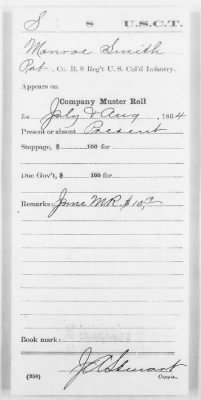 S 8 U.S.C.T.
Monroe Smith
Pvt, Co. B, 8 Reg't U. S. Col'd Infantry.
Appears on
Company Muster Roll
for July & Aug, 1864
Present or absent Present
Stoppage, $ 100 for
Due Gov't, $ 100 for
Remarks: June MR $10.
Book mark:
(358) J A Stewart
Copyist.